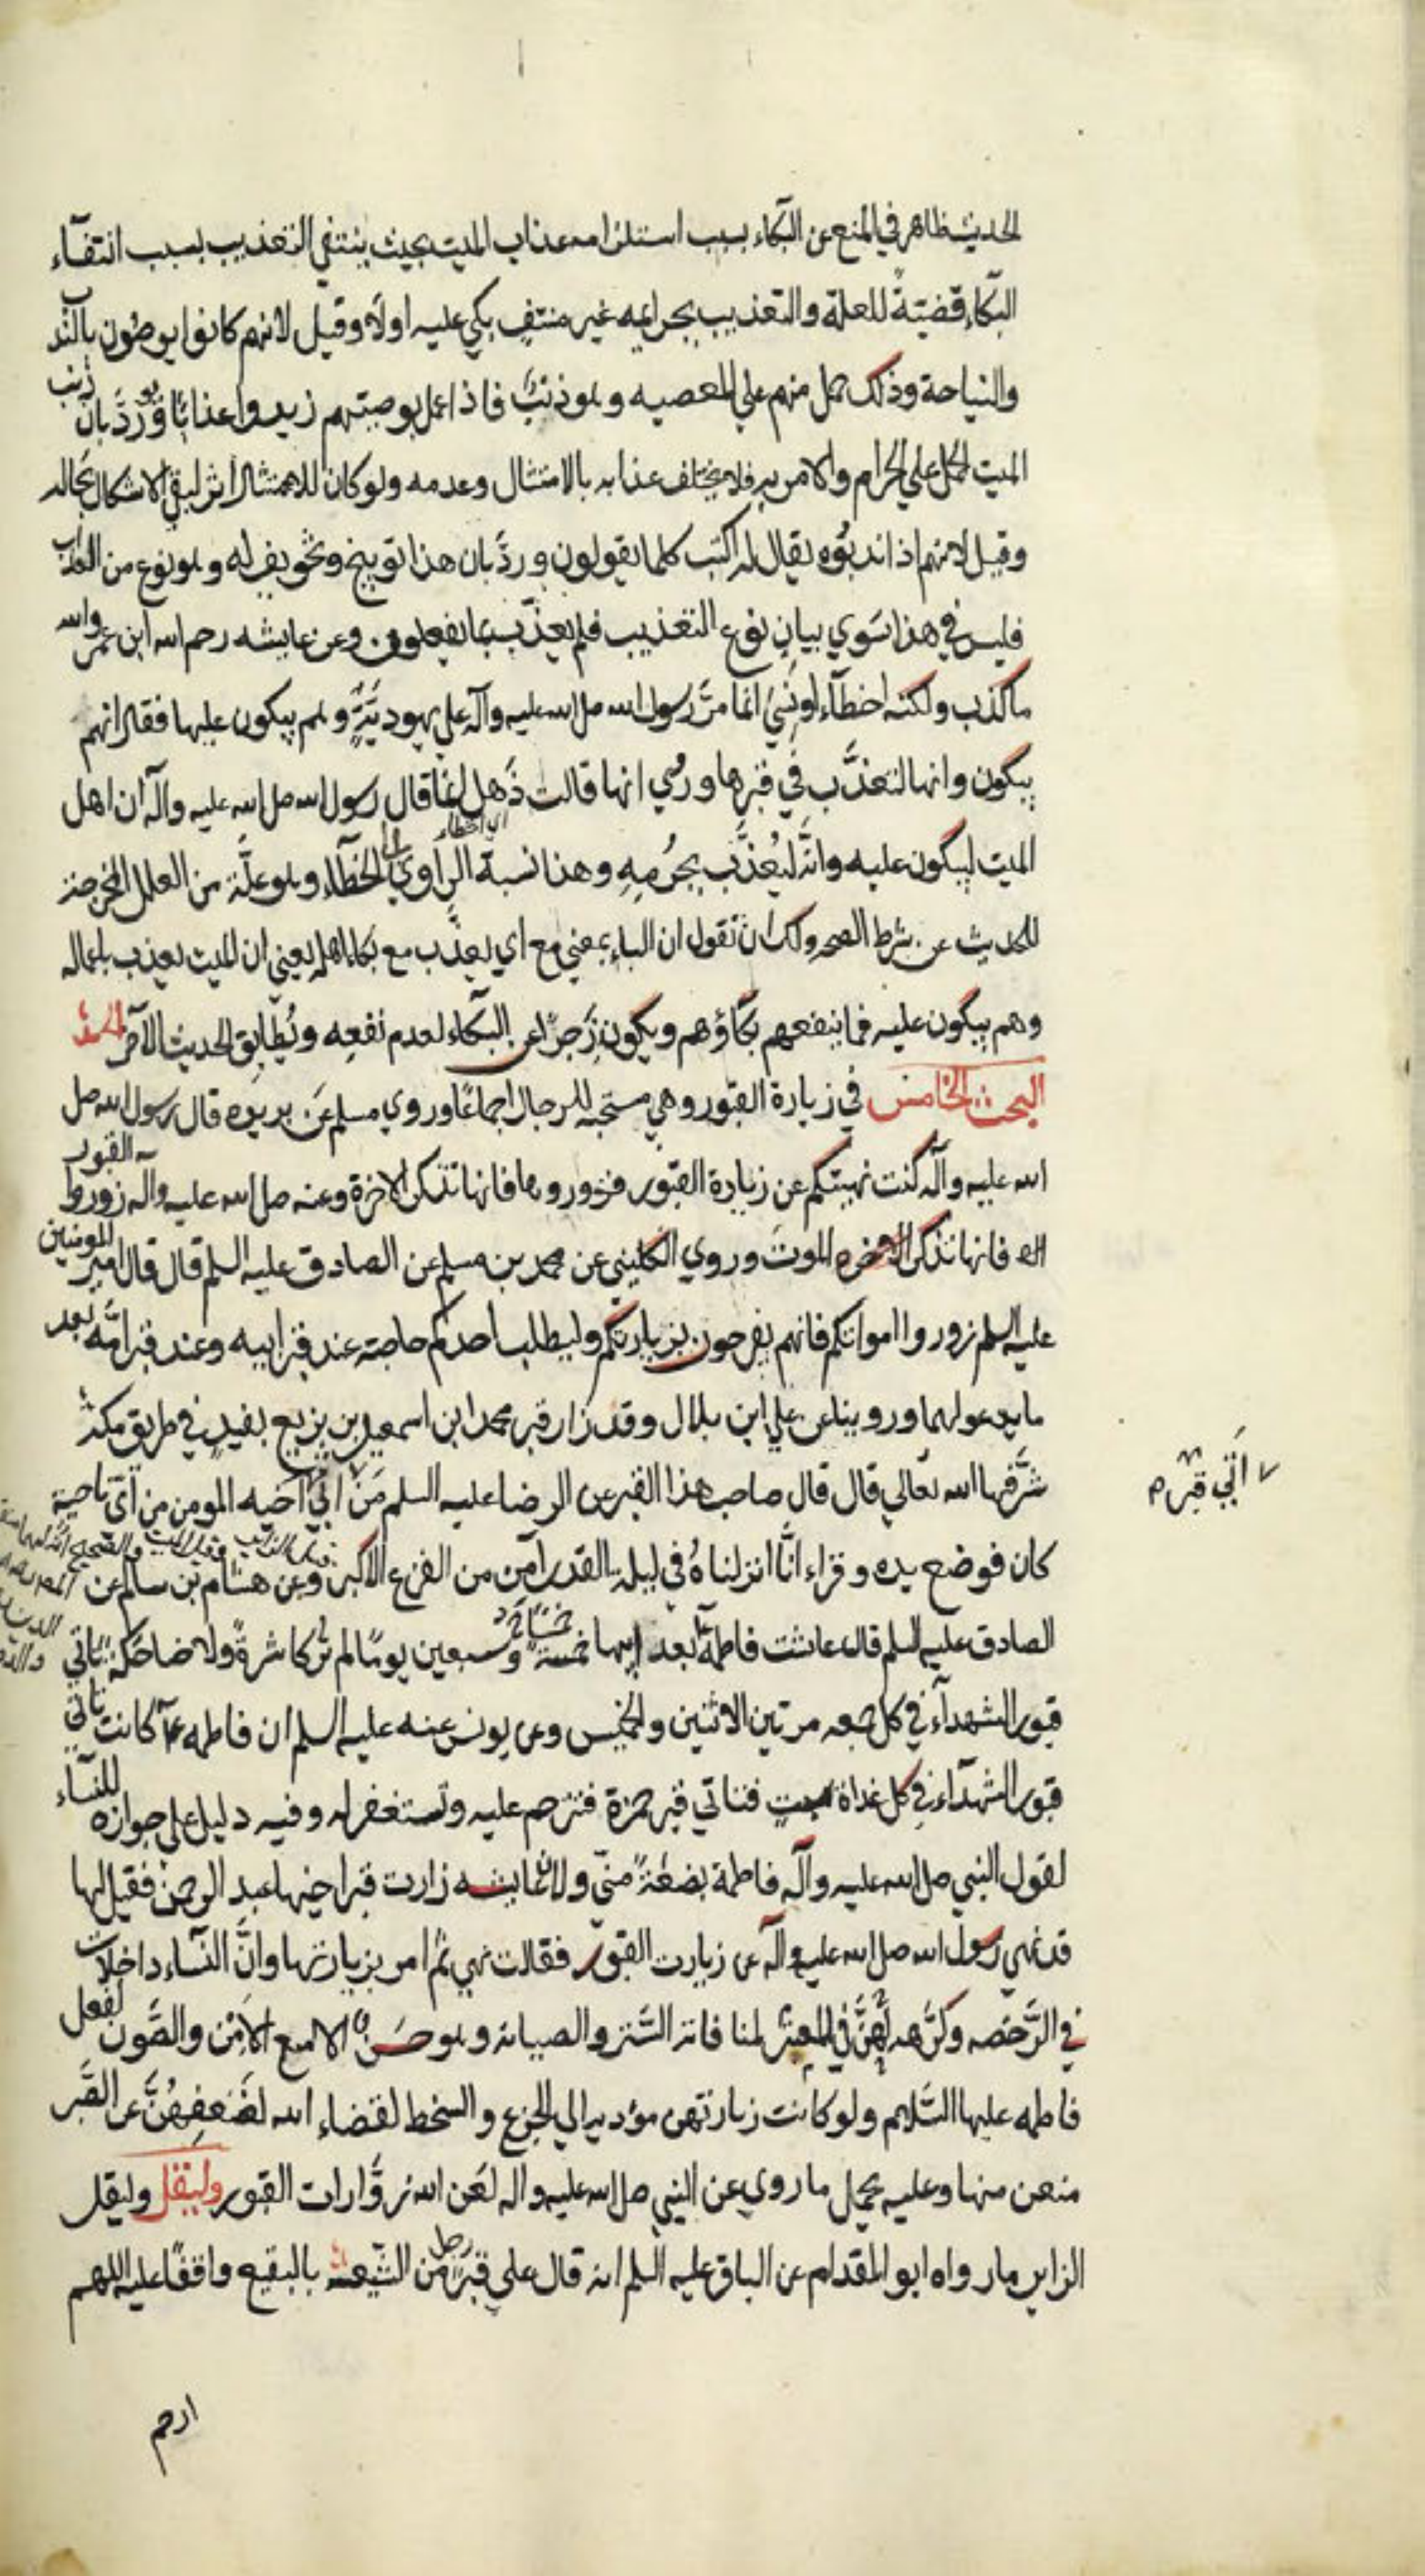 الحديث ظاهر في المنع عن البكاء بسبب استلزامه عذاب الميت بحيث ينتفي التعذيب بسبب انتفاء
البكاء قضيةً للعلة والتعذيب بجرايمه غير منتفٍ بكي عليه اولا وقيل لانهم كانوا يوصون بالندب
والنياحة وذلك حمل منهم علي المعصيه وهو ذنبٌ فاذا عمل بوصيتهم زيدوا عذابًا وردّ بان ذنب
الميت الحمل علي الحرام والامر به فلا يختلف عذابه بالامتثال وعدمه ولو كان للامتثال اثر لبقي الاشكال بحاله
وقيل لانهم اذا ندبوه يقال له اكنت كما يقولون وردّ بان هذا توبيخ وتخويف له وهو نوع من العذاب
فليس في هذا سوي بيان نوع التعذيب فلم يعذّب بما يفعلون وعن عايشه رحم الله ابن عمر والله
ما كذب ولكنه اخطاء او نسي انما مرّ رسول الله صل الله عليه وآله علي يهوديّةٍ وهم يبكون عليها فقال انهم
يبكون وانها لتعذّب في قبرها وروي انها قالت ذَهل انما قال رسول الله صل الله عليه وآله ان اهل
الميت ليبكون عليه وانّه ليُعذَّب بجُرمِهِ وهذا نسبة الراوي الي الخطاء وهو علّة من العلل المخرجة
للحديث عن شرط الصحه ولك ان تقول ان الباء بمعني مع اي يعذَّب مع بكاء اهله يعني ان الميت يعذب باعماله
وهم يبكون عليه فما ينفعهم بكاؤهم ويكون زَجرًا عن البكاء لعدم نفعِه ويُطابِق الحديث الآخر
البحث الخامس في زيارة القبور وهي مستحبه للرجال اجماعًا وروي مسلم عن بريده قال رسول الله صل
الله عليه وآله كنت نهيتكم عن زيارة القبور فزوروها فانها تذكر الاخرة وعنه صل الله عليه وآله زوروا القبور
فانها تذكر الموت وروي الكليني عن محمد بن مسلم عن الصادق عليه السلم قال قال امير المومنين
عليه السلم زوروا امواتكم فانهم يفرحون بزيارتكم وليطلب احدكم حاجته عند قبر ابيه وعند قبر امّه بعد
ما يدعو لهما وروينا عن علي ابن بلال وقد زار قبر محمد ابن اسمعيل بن بزيع بفيدٍ في طريق مكة
شرَّفها الله تعالي قال قال صاحب هذا القبر عن الرضا عليه السلم مَن اتي اخيه المومن من اي ناحية
اتي قبر
كان فوضع يده وقراء انّا انزلناهُ في ليلة القدر آمن من الفزع الاكبر وعن هشام بن سالم عن
الصادق عليه السلم قال عاشت فاطمة بعد ابيها خمسةً وسبعين يومًا لم تُر كاشرةً ولا ضاحكةً تاتي
قبور الشهدآء في كل جمعه مرتين الاثنين والخميس وعن يونس عنه عليه السلم ان فاطمه كانت تاتي
قبور الشهداء في كل غداة سبتٍ فتاتي قبر حمزة فتترحم عليه وتستغفر له وفيه دليل علي جوازه للنساء
لقول النبي صل الله عليه وآله فاطمة بضعةٌ منّي ولان عايشه زارت قبر اخيها عبد الرحمن فقيل لها
قد نهي رسول الله صل الله عليه وآله عن زيارت القبور فقالت نهي ثم امر بزيارتها وانَّ النساء داخلات
في الرّخصه وكرّهه لهنّ في المعتبر لمنافاته الستر والصيانه وهو حسن الا مع الامن والصّون لفعل
فاطمه عليها السَّلام ولو كانت زيارتهن مؤديه الي الجزع والسخط لقضاء الله لضعفِهُنّ عن الصّبر
منعن منها وعليه يحمل ما روي عن النبي صل الله عليه واله لعَن الله زوَّارات القبور وليقل
الزاير ما رواه ابو المقدام عن الباقر عليه السلم انه قال علي قبر رجل من الشّيعه بالبقيع واقفًا عليه اللهم
ارحم